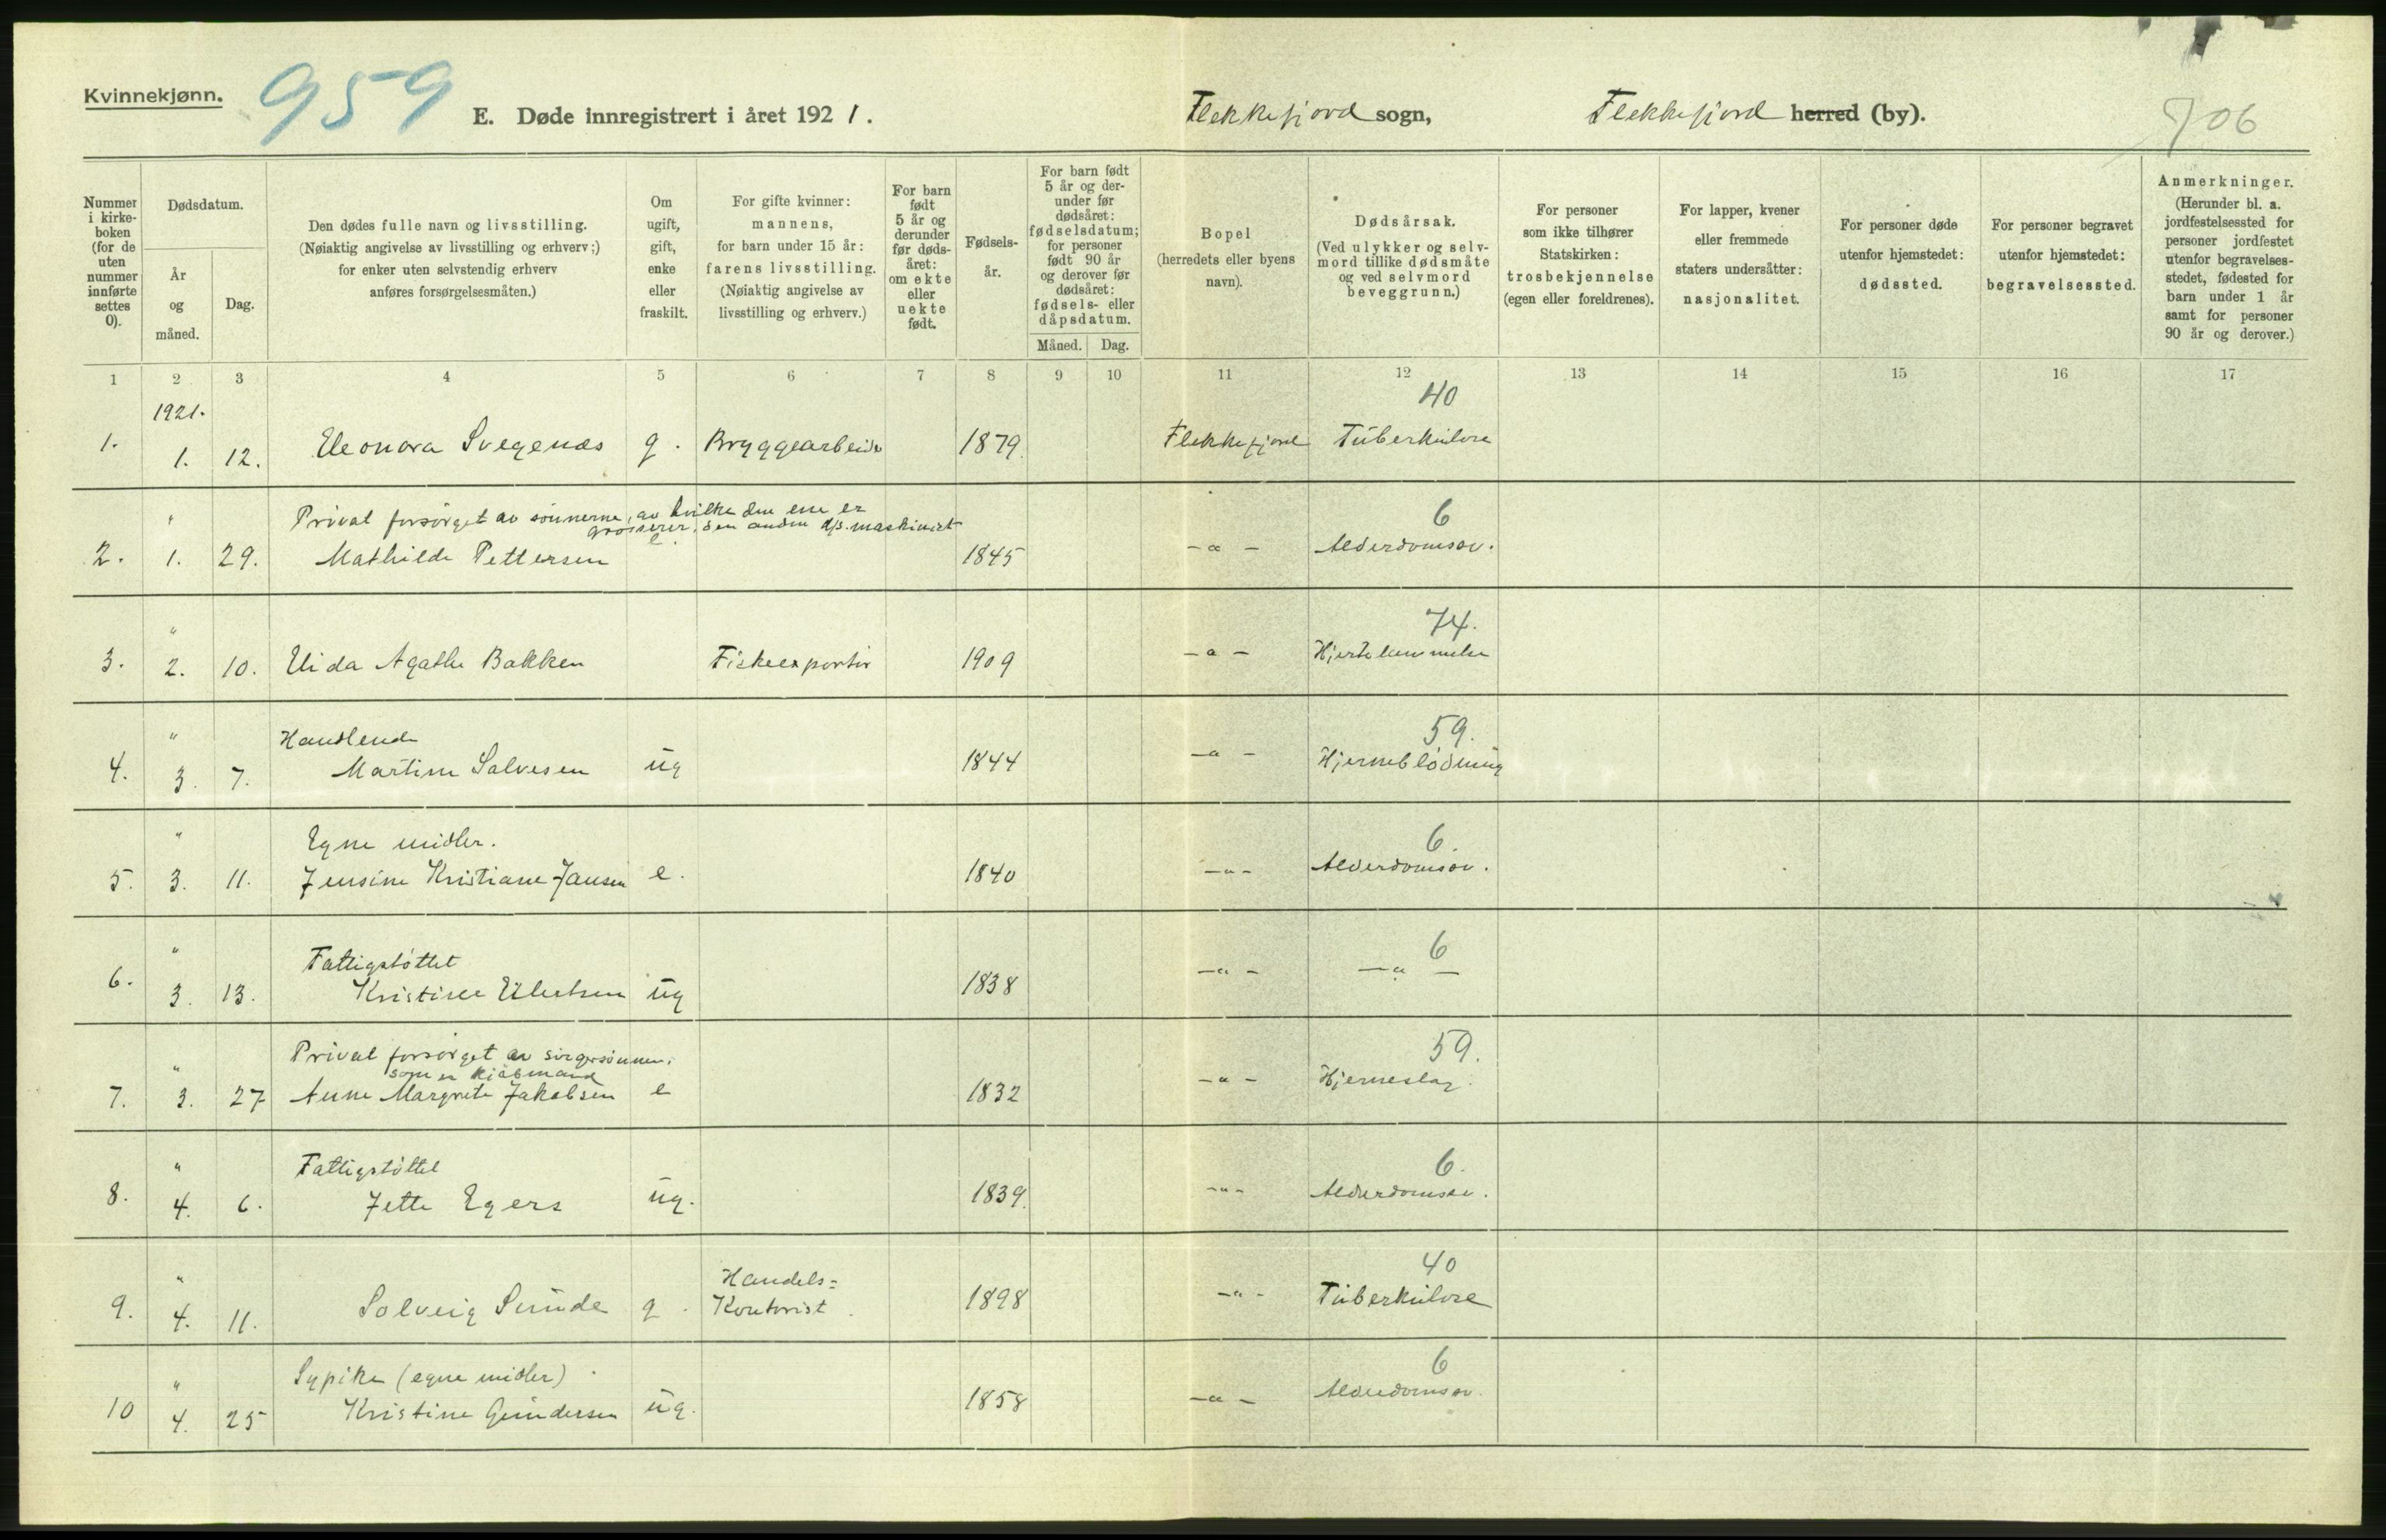 Kvinnekjønn.
959
E. Døde innregistrert i året 1921.
Flekkefjord sogn,
Flekkefjord herred (by).
706
Nummer i kirkeboken (for de uten nummer innførte settes 0).
Dødsdatum.
År og måned.
Dag.
Den dødes fulle navn og livsstilling.
(Nøiaktig angivelse av livsstilling og erhverv;)
for enker uten selvstendig erhverv
anføres forsørgelsesmåten.)
Om ugift, gift, enke eller fraskilt.
For gifte kvinner:
mannens,
for barn under 15 år:
farens livsstilling.
(Nøiaktig angivelse av
livsstilling og erhverv.)
For barn født 5 år og derunder før dødsåret: om ekte eller uekte født.
Fødselsår.
For barn født 5 år og derunder før dødsåret: fødselsdatum; for personer født 90 år og derover før dødsåret: fødsels- eller dåpsdatum.
Måned. Dag.
Bopel
(herredets eller byens
navn).
Dødsårsak.
(Ved ulykker og selvmord tillike dødsmåte og ved selvmord beveggrunn.)
For personer
som ikke tilhører
Statskirken:
trosbekjennelse
(egen eller foreldrenes).
For lapper, kvener
eller fremmede
staters undersåtter:
nasjonalitet.
For personer døde
utenfor hjemstedet:
dødssted.
For personer begravet
utenfor hjemstedet:
begravelsessted.
Anmerkninger.
(Herunder bl. a.
jordfestelsessted for
personer jordfestet
utenfor begravelsesstedet, fødested for
barn under 1 år
samt for personer
90 år og derover.)
1 2 3 4 5 6 7 8 9 10 11 12 13 14 15 16 17
1921.
40
1. 1. 12. Eleonora Svegenæs g. Bryggearbeider 1879. Flekkefjord Tuberkulose
" Privat forsørget av sønnerne, av hvilke den ene er 6
grosserer, den anden d/s. maskinist
2. 1. 29. Mathilde Pettersen e. 1845 -"- Alderdomsv.
" 74.
3. 2. 10. Elida Agathe Bakken Fiskeexportør 1909 -"- Hjertelammelse
" Handlende 59.
4. 3. 7. Martine Salvesen ug 1844 -"- Hjerneblødning
" Egne midler. 6.
5. 3. 11. Jensine Kristiane Jansen e. 1840 -"- Alderdomsv.
" Fattigstøttet 6
6. 3. 13. Kristine ug 1838 -"- -"-
" Privat forsørget av svigersønnen, 59.
som er kjøbmand
7. 3. 27 Anne Margrete Jakobsen e 1832 -"- Hjerneslag.
" Fattigstøttet 6.
8. 4. 6. Jette Egers ug. 1839. -"- Alderdomsv.
" Handels= 40
9. 4. 11. Solveig Sunde g. Kontorist. 1898 -"- Tuberkulose
" Sypike (egne midler). 6
10 4. 25 Kristine Gundersen ug. 1858 -"- Alderdomsv.